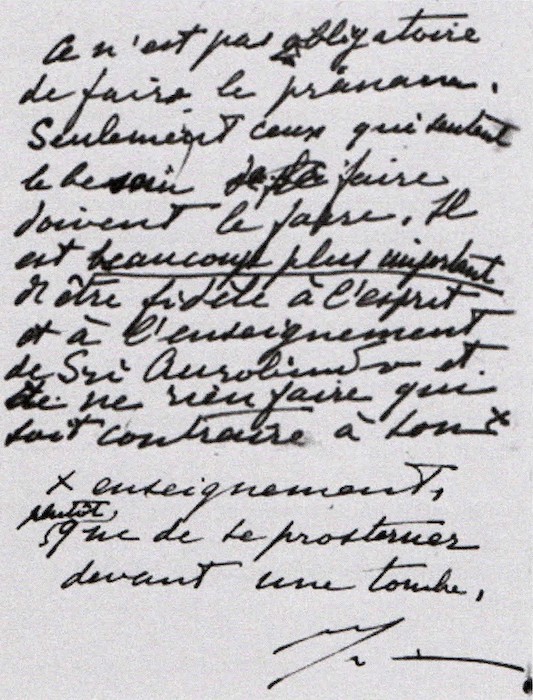 Ce n'est pas obligatoire
de faire le pranam.
Seulement ceux qui sentent
le besoin de le faire
doivent le faire. Il
est beaucoup plus important
d'être fidèle à l'esprit
et à l'enseignement
de Sri Aurobindo et
de ne rien faire qui
soit contraire à son x
x enseignement,
plutôt
que de se prosterner
devant une tombe.